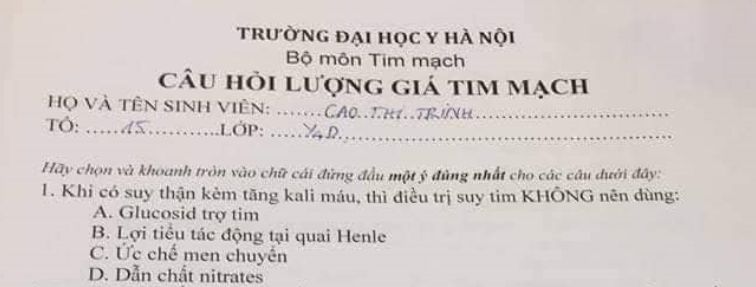 TRƯỜNG ĐẠI HỌC Y HÀ NỘI
Bộ môn Tim mạch
CÂU HỎI LƯỢNG GIÁ TIM MẠCH
HỌ VÀ TÊN SINH VIÊN: .......CAO..THỊ..TRINH..............................
TỔ: .....15............LỚP: .....Y4D..............................
Hãy chọn và khoanh tròn vào chữ cái đứng đầu một ý đúng nhất cho các câu dưới đây:
1. Khi có suy thận kèm tăng kali máu, thì điều trị suy tim KHÔNG nên dùng:
A. Glucosid trợ tim
B. Lợi tiểu tác động tại quai Henle
C. Ức chế men chuyển
D. Dẫn chất nitrates